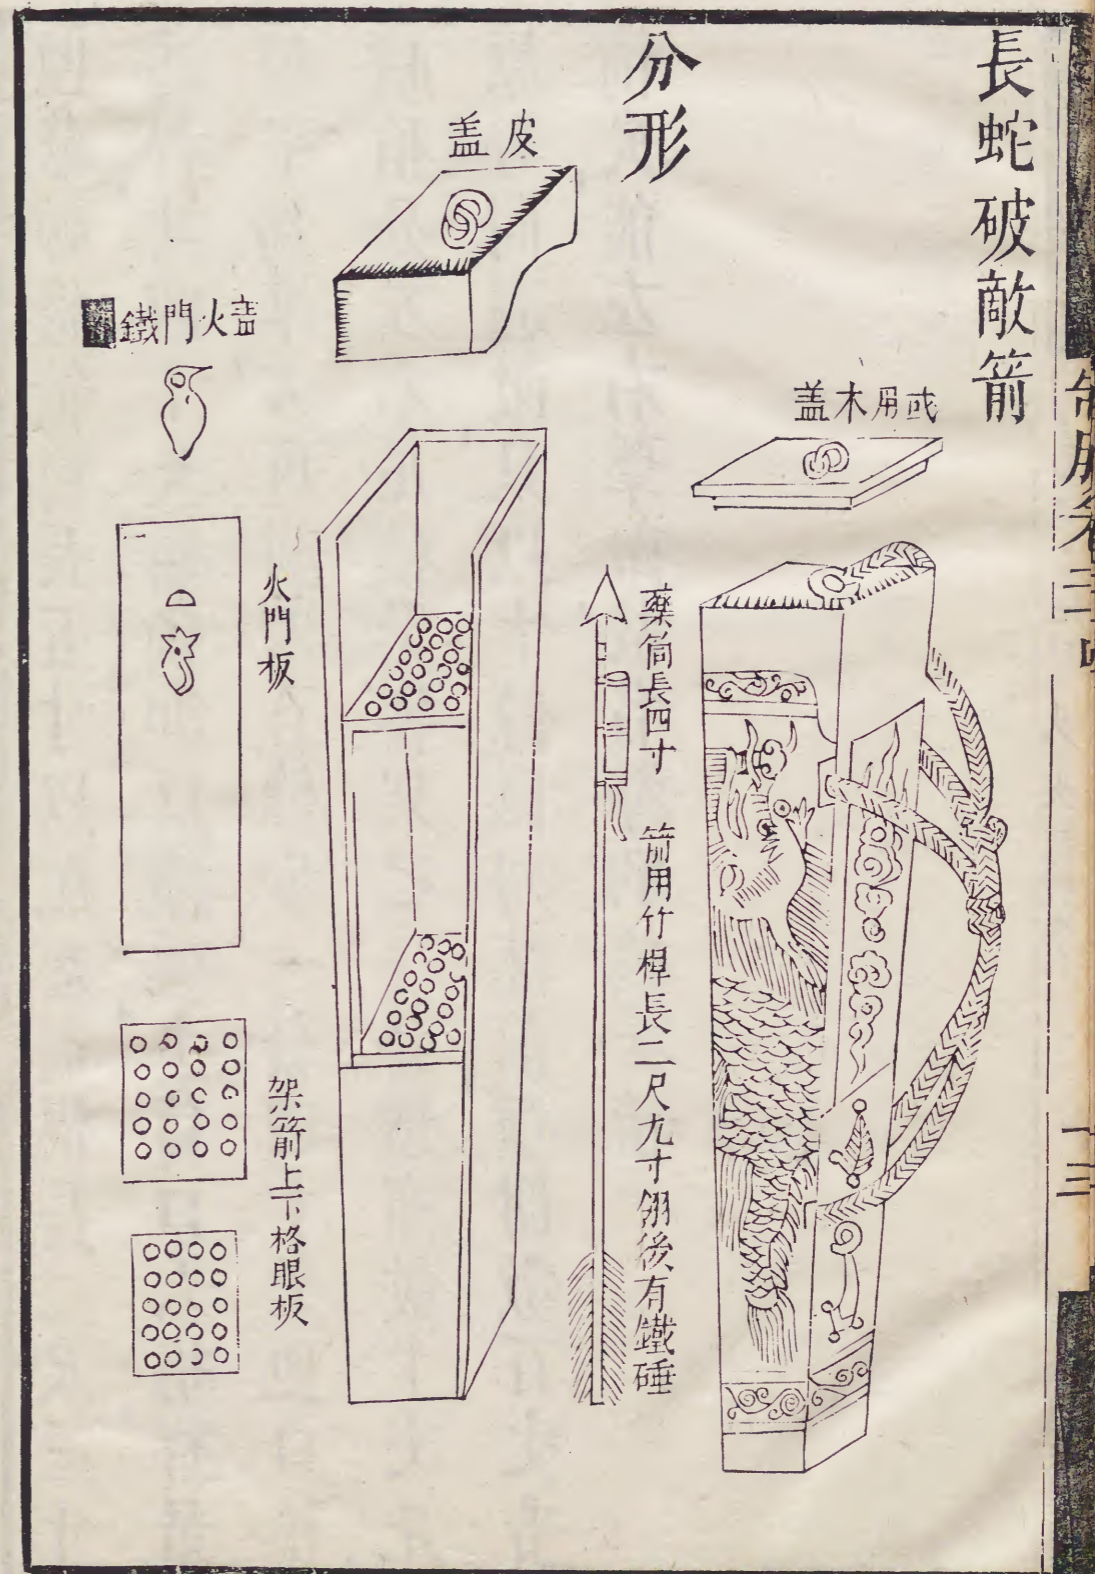 長蛇破敵箭
或用木盖
分形
藥筒長四寸 箭用竹桿長二尺九寸翎後有鐵硾
皮盖
火門板
架箭上下格眼板
盖火門鐵